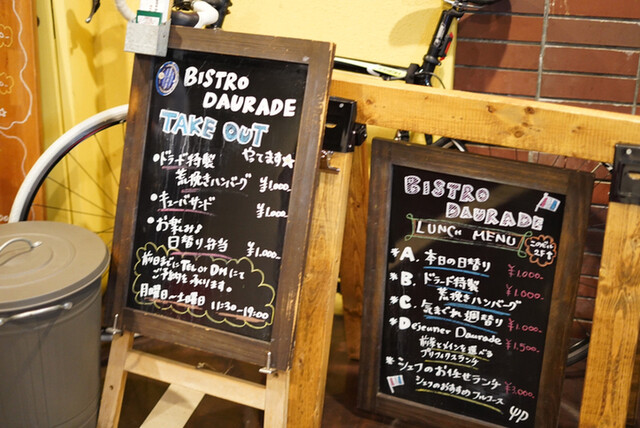 BISTRO
DAURADE
TAKE OUT
やってます★
・ドラード特製
荒挽きハンバーグ ¥1,000-
・キューバサンド ¥1,000-
・お楽しみ♪
日替り弁当 ¥1,000-
前日までに Tel or DM にて
ご予約を承ります。
月曜日〜土曜日 11:30-19:00
BISTRO
DAURADE
LUNCH MENU
*A. 本日の日替り ¥1,000-
*B. ドラード特製
荒挽きハンバーグ ¥1,000-
*C. 気まぐれ週替り ¥1,000-
*Dejeuner Daurade ¥1,500-
前菜とメインを選べる
プリフィクスランチ
*シェフのお任せランチ ¥3,000-
シェフのおすすめフルコース